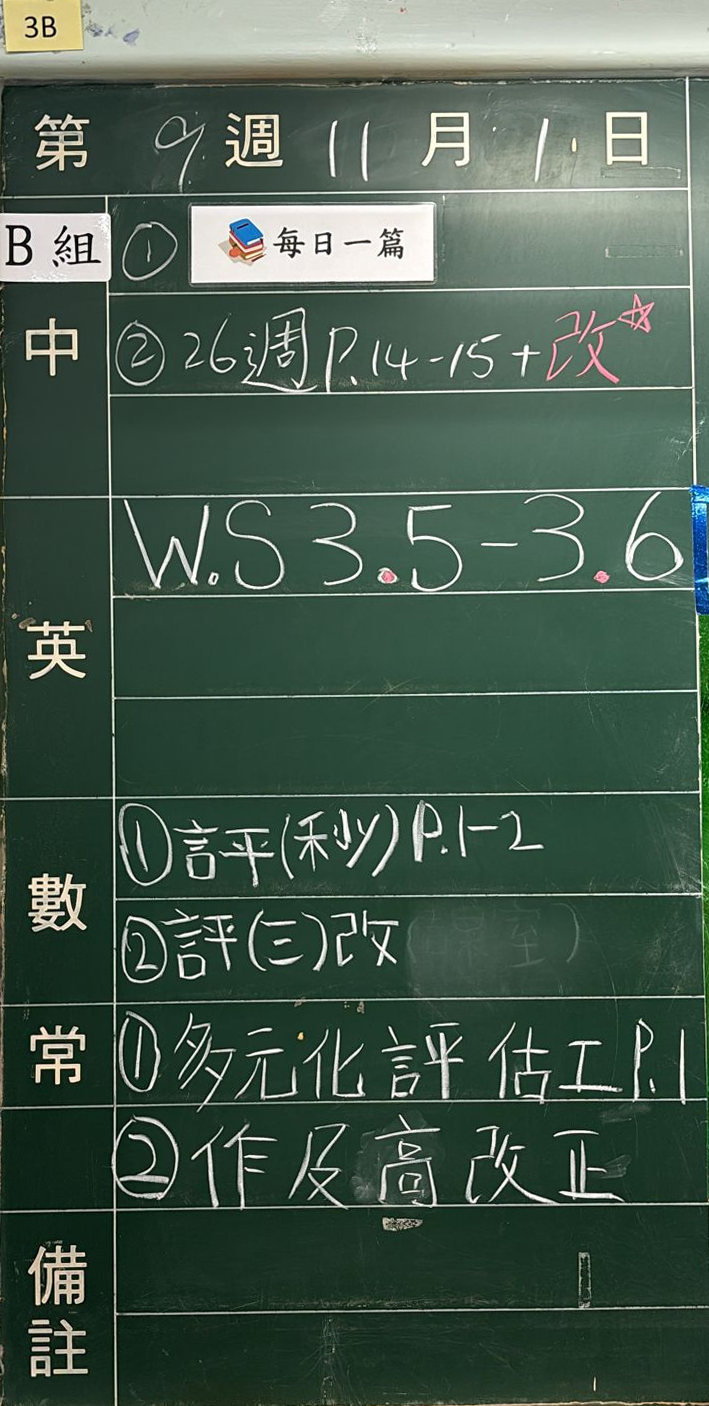 3B
第 9 週 11 月 1 日
B 組 ① 每日一篇
中 ② 26週 P.14-15+改☆
英 W.S 3.5-3.6
數 ① 評(秒) P.1-2
② 評(三)改
常 ① 多元化評估工 P.1
② 作及高改正
備註